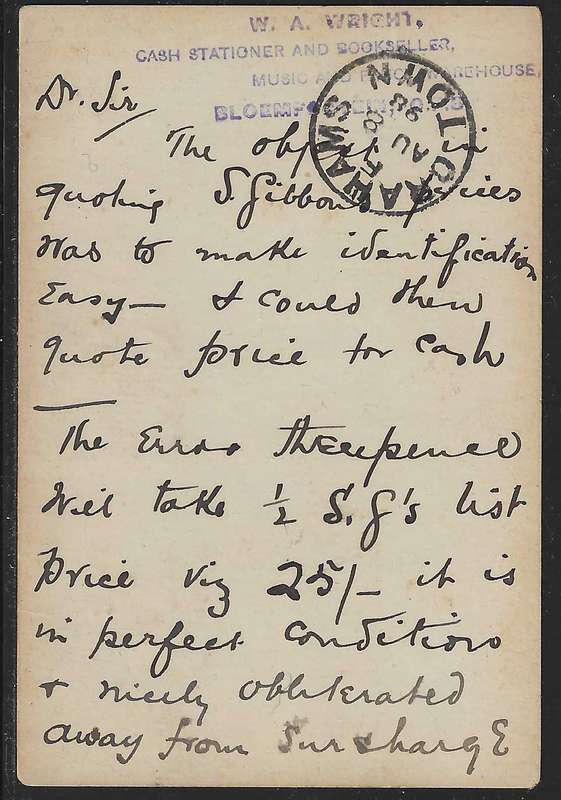 W. A. WRIGHT,
CASH STATIONER AND BOOKSELLER,
MUSIC AND WAREHOUSE,
GRAAHAMSTOWN
AU 5
98
Dr. Sir
The object in
quoting S. Gibbons prices
was to make identification
Easy — & could then
quote price for cash
The Error threepence
Will take ½ S. G's list
price viz 25/- it is
in perfect condition
& nicely obliterated
away from Surcharge